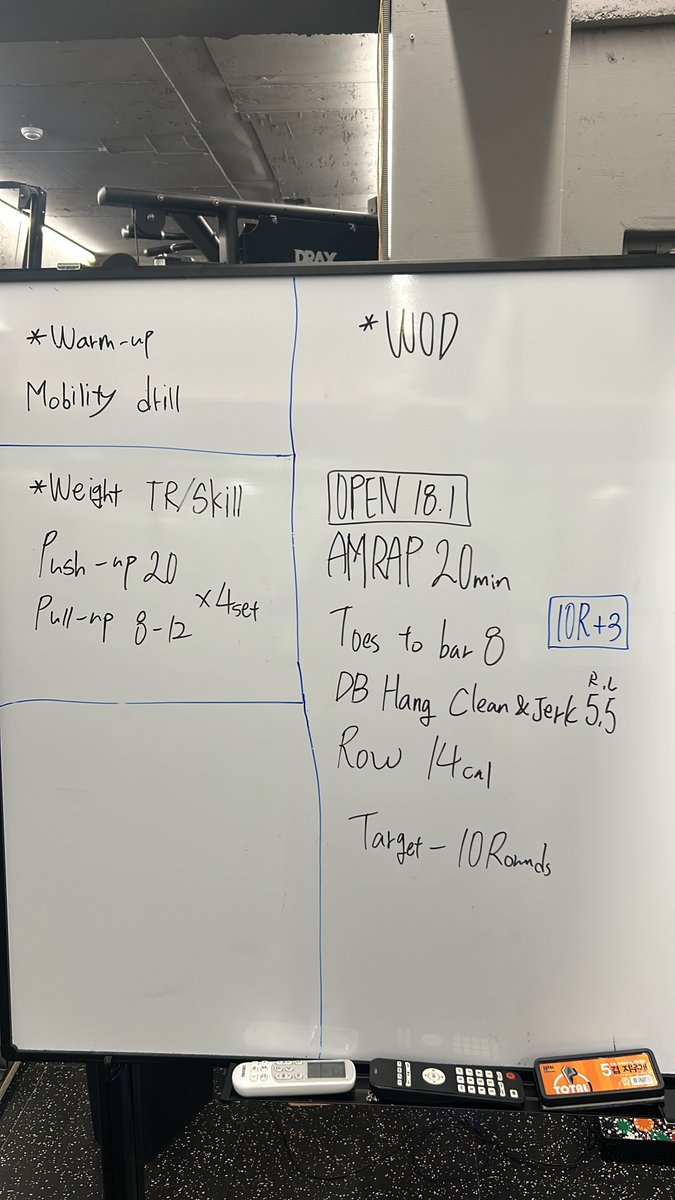 DRAX
*Warm-up
Mobility drill
*Weight TR/Skill
Push-up 20
Pull-up 8-12
x4set
*WOD
OPEN 18.1
AMRAP 20min
Toes to bar 8
10R+3
DB Hang Clean & Jerk 5.5
R.L
Row 14cal
Target - 10Rounds
TOTAL
5겹 지우개